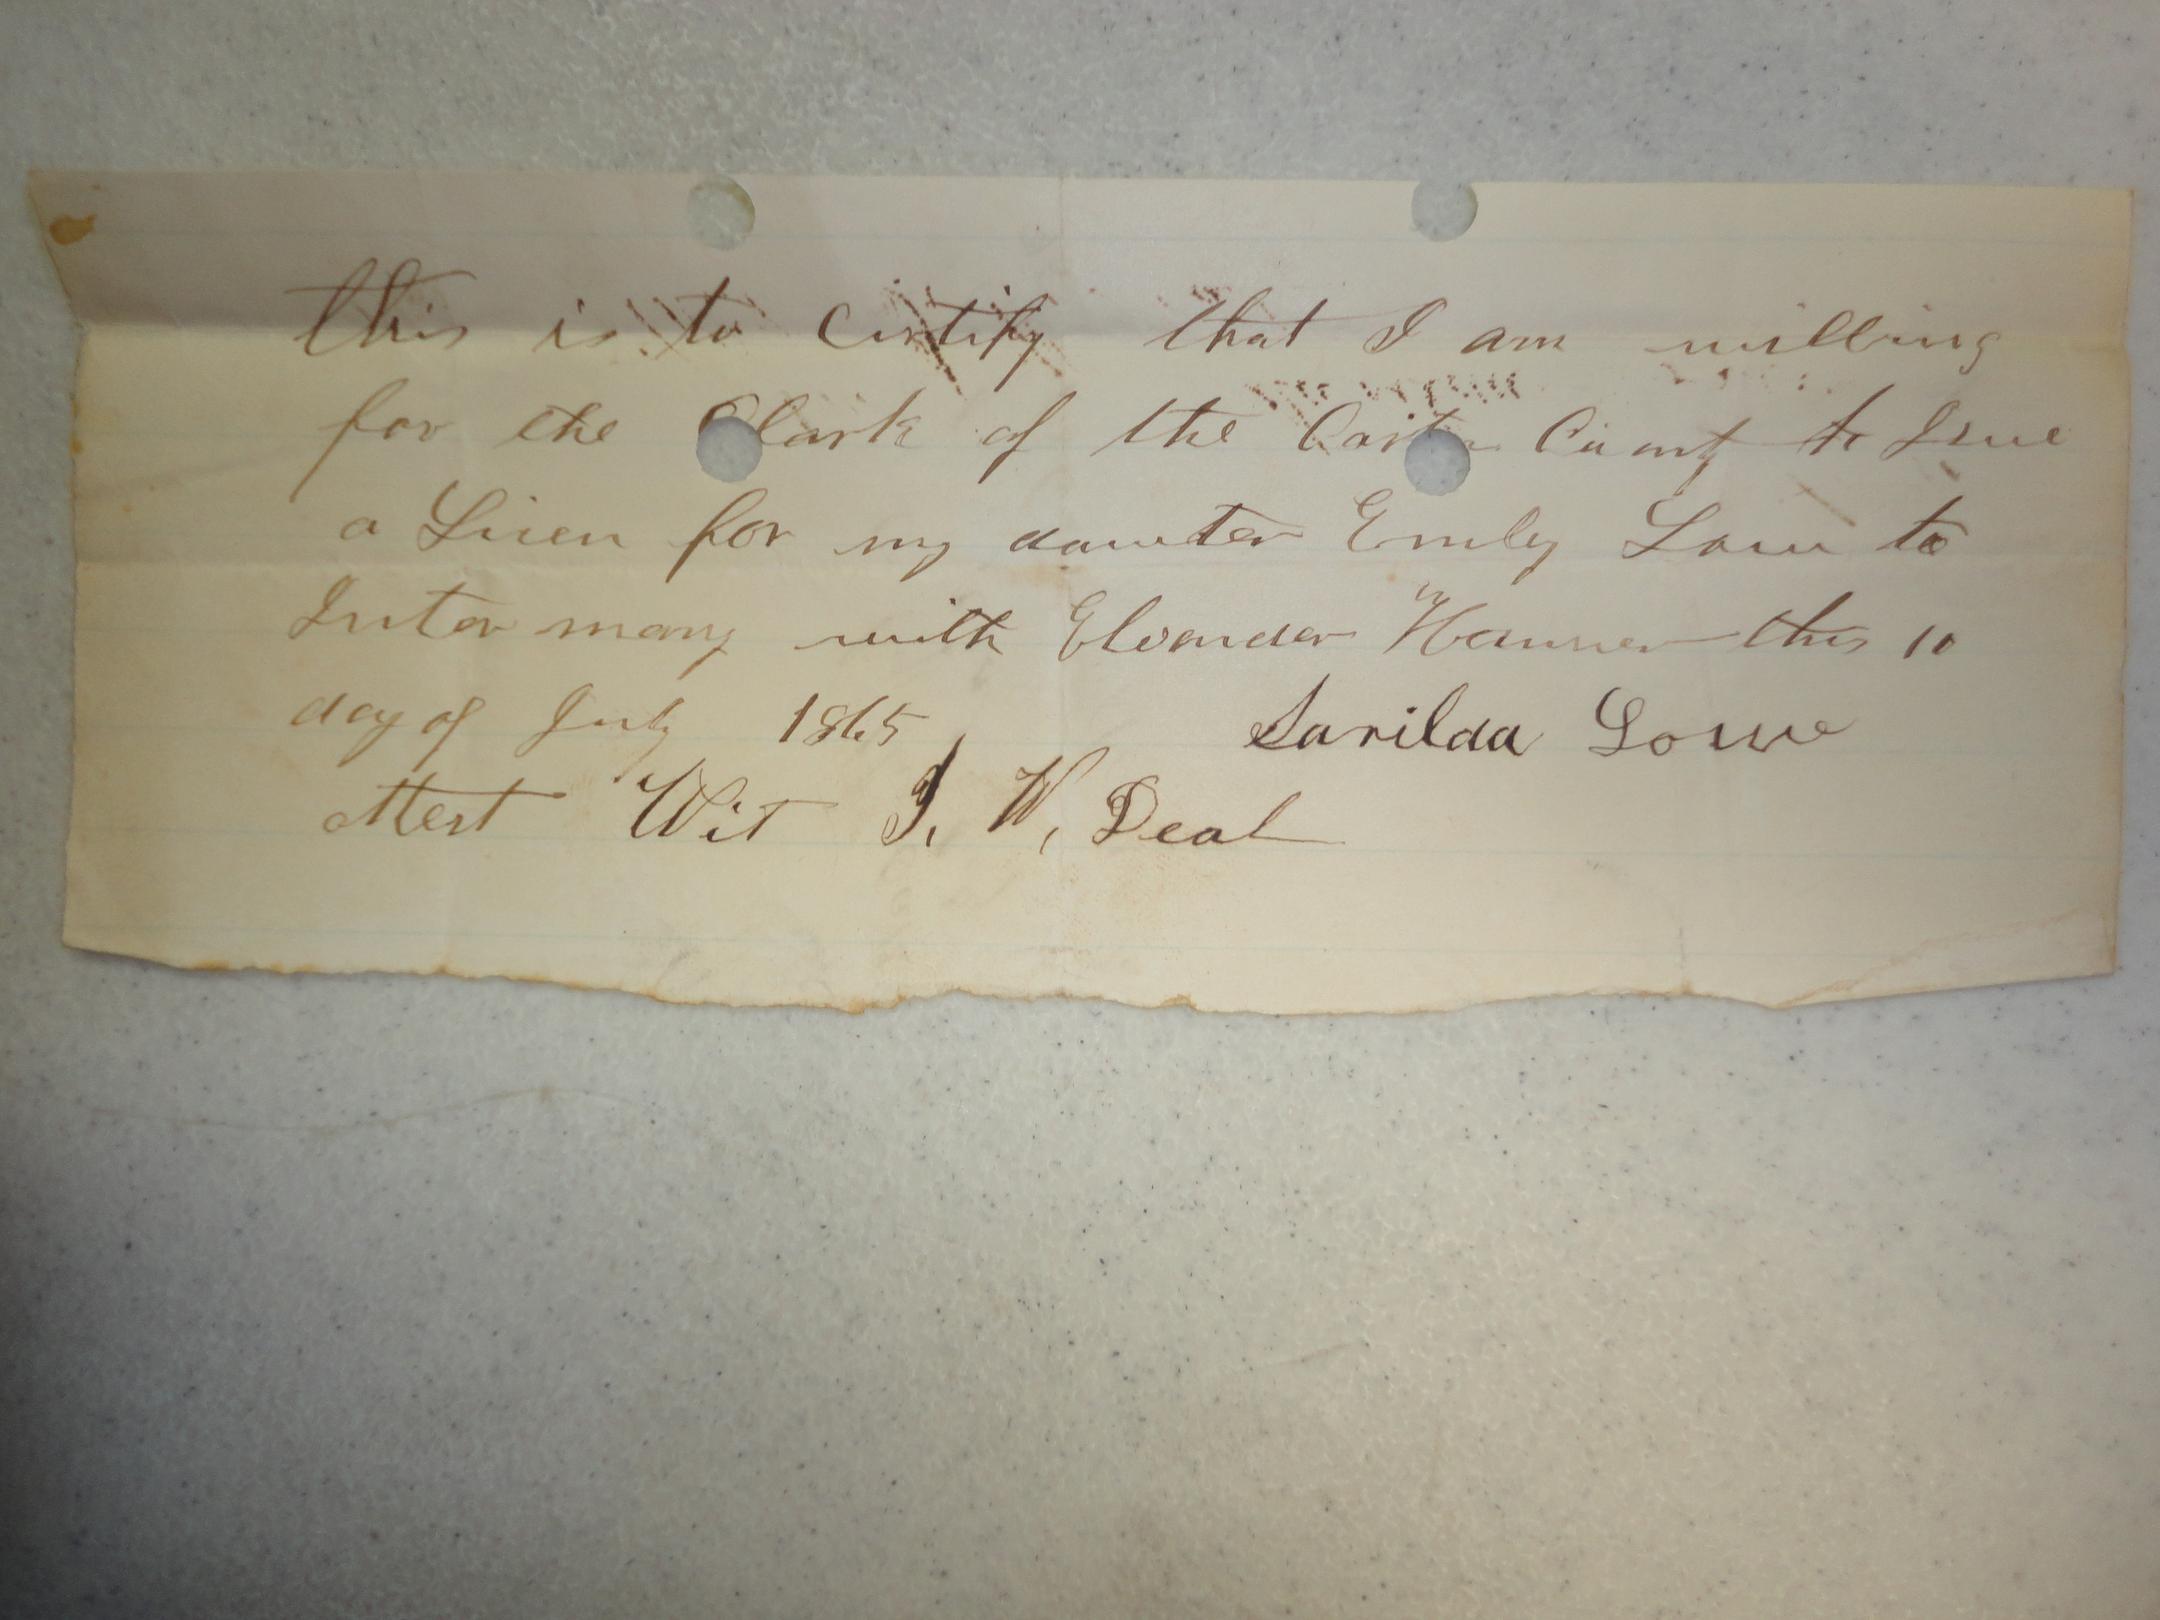 this is to certify that I am willing
for the Clark of the Carter County to Isue
a Lisen for my dauter Emily Low to
Inter mary with Elvender Hanner this 10
day of July 1865 Sarilda Lowe
attest Wit J. W. Deal